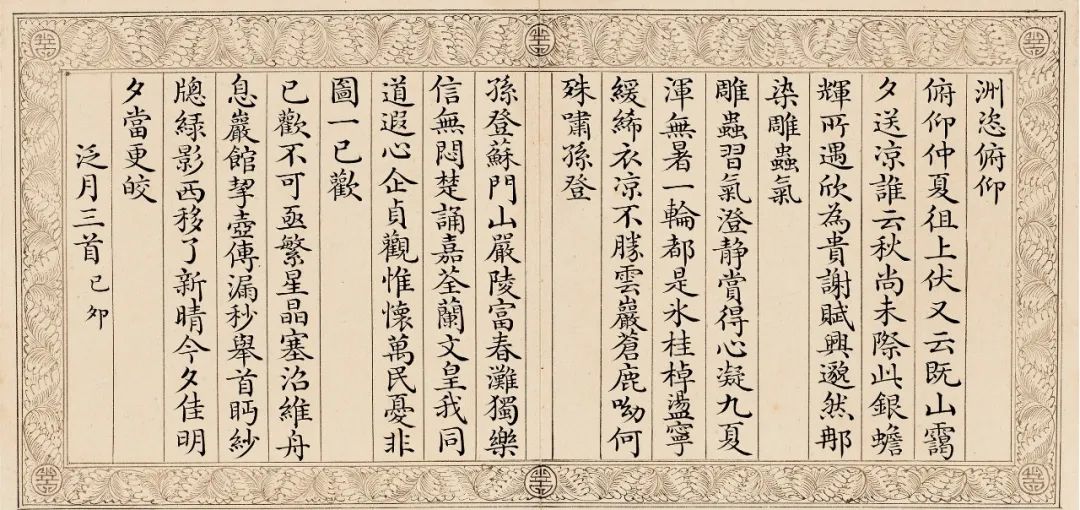 洲恣俯仰
俯仰仲夏徂上伏又云既山靄
夕送凉誰云秋尚未際此銀蟾
輝所遇欣為貴謝賦興邈然那
染雕蟲氣
雕蟲習氣澄靜賞得心凝九夏
渾無暑一輪都是氷桂棹盪寧
緩絺衣凉不勝雲巖蒼鹿呦何
殊嘯孫登
孫登蘇門山嚴陵富春灘獨樂
信無悶楚誦嘉荃蘭文皇我同
道遐心企貞觀惟懷萬民憂非
圖一己歡
已歡不可亟繁星晶塞沿維舟
息巖館挈壺傳漏秒舉首眄紗
牕綠影西移了新晴今夕佳明
夕當更皎
泛月三首 己卯